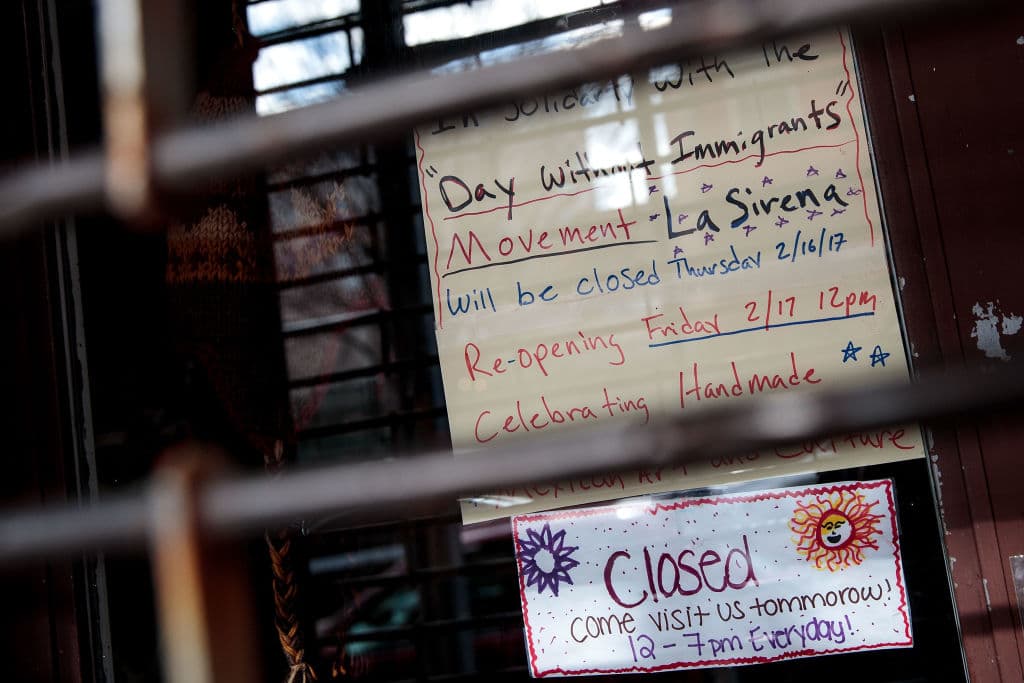 In Solidarity with The
"Day Without Immigrants"
Movement La Sirena
Will be closed Thursday 2/16/17
Re-opening Friday 2/17 12pm
Celebrating Handmade
Mexican Art and Culture
Closed
come visit us tommorow!
12-7pm Everyday!